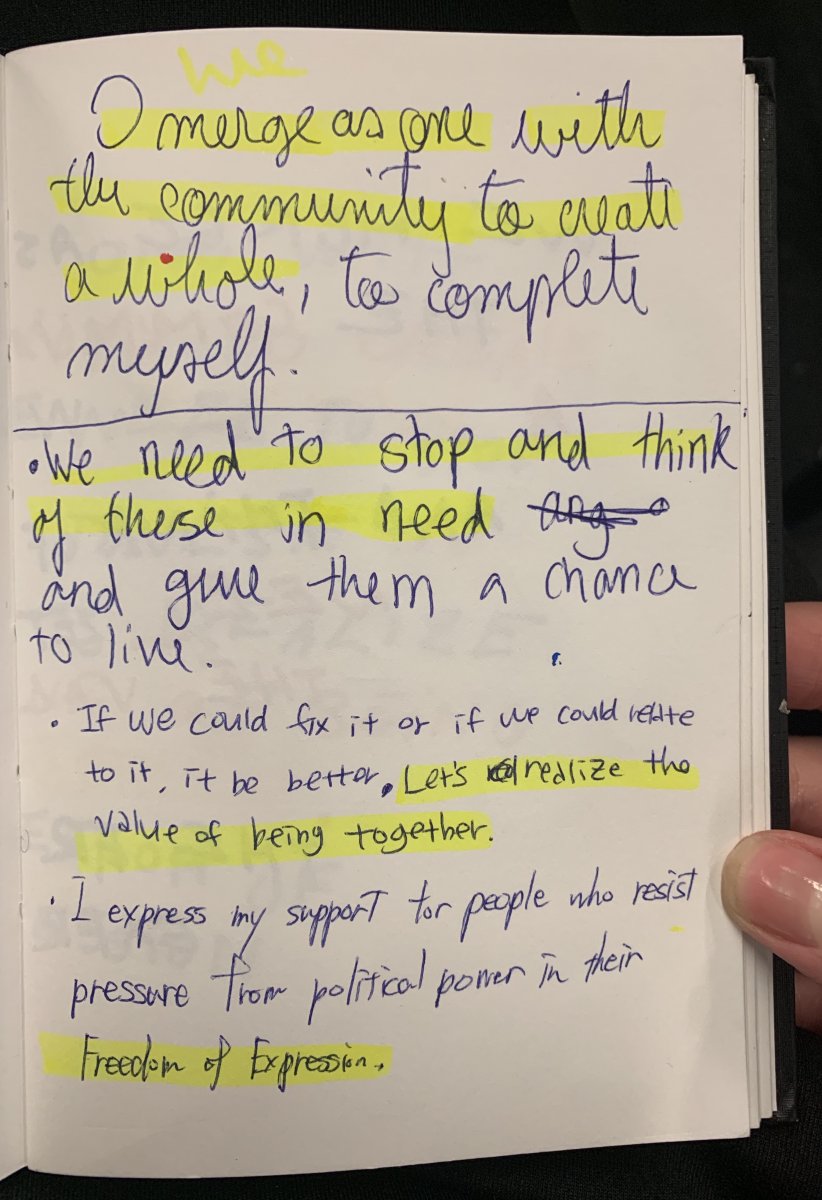 we
I merge as one with
the community to create
a whole, to complete
myself.
• We need to stop and think
of these in need
and give them a chance
to live.
• If we could fix it or if we could relate
to it, it be better. Let's realize the
value of being together.
• I express my support for people who resist
pressure from political power in their
Freedom of Expression.